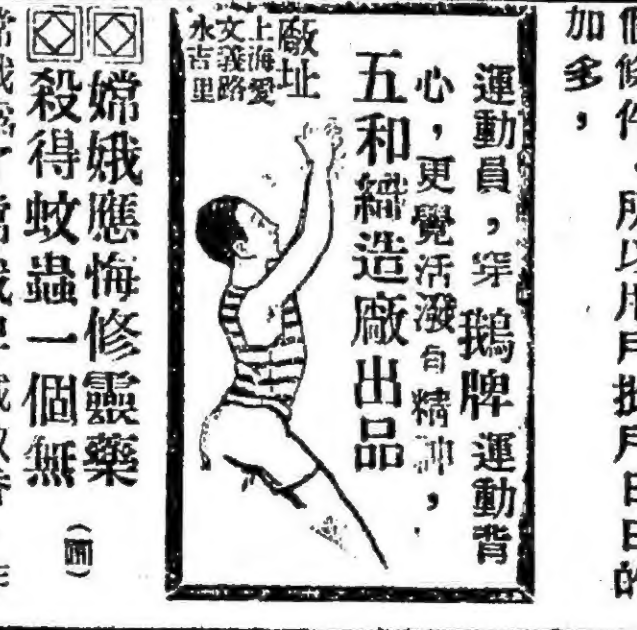 加多，
運動員，穿鵝牌運動背
心，更覺活潑有精神，
五和織造廠出品
廠址
上海愛
文義路
永吉里
嫦娥應悔修靈藥
殺得蚊蟲一個無